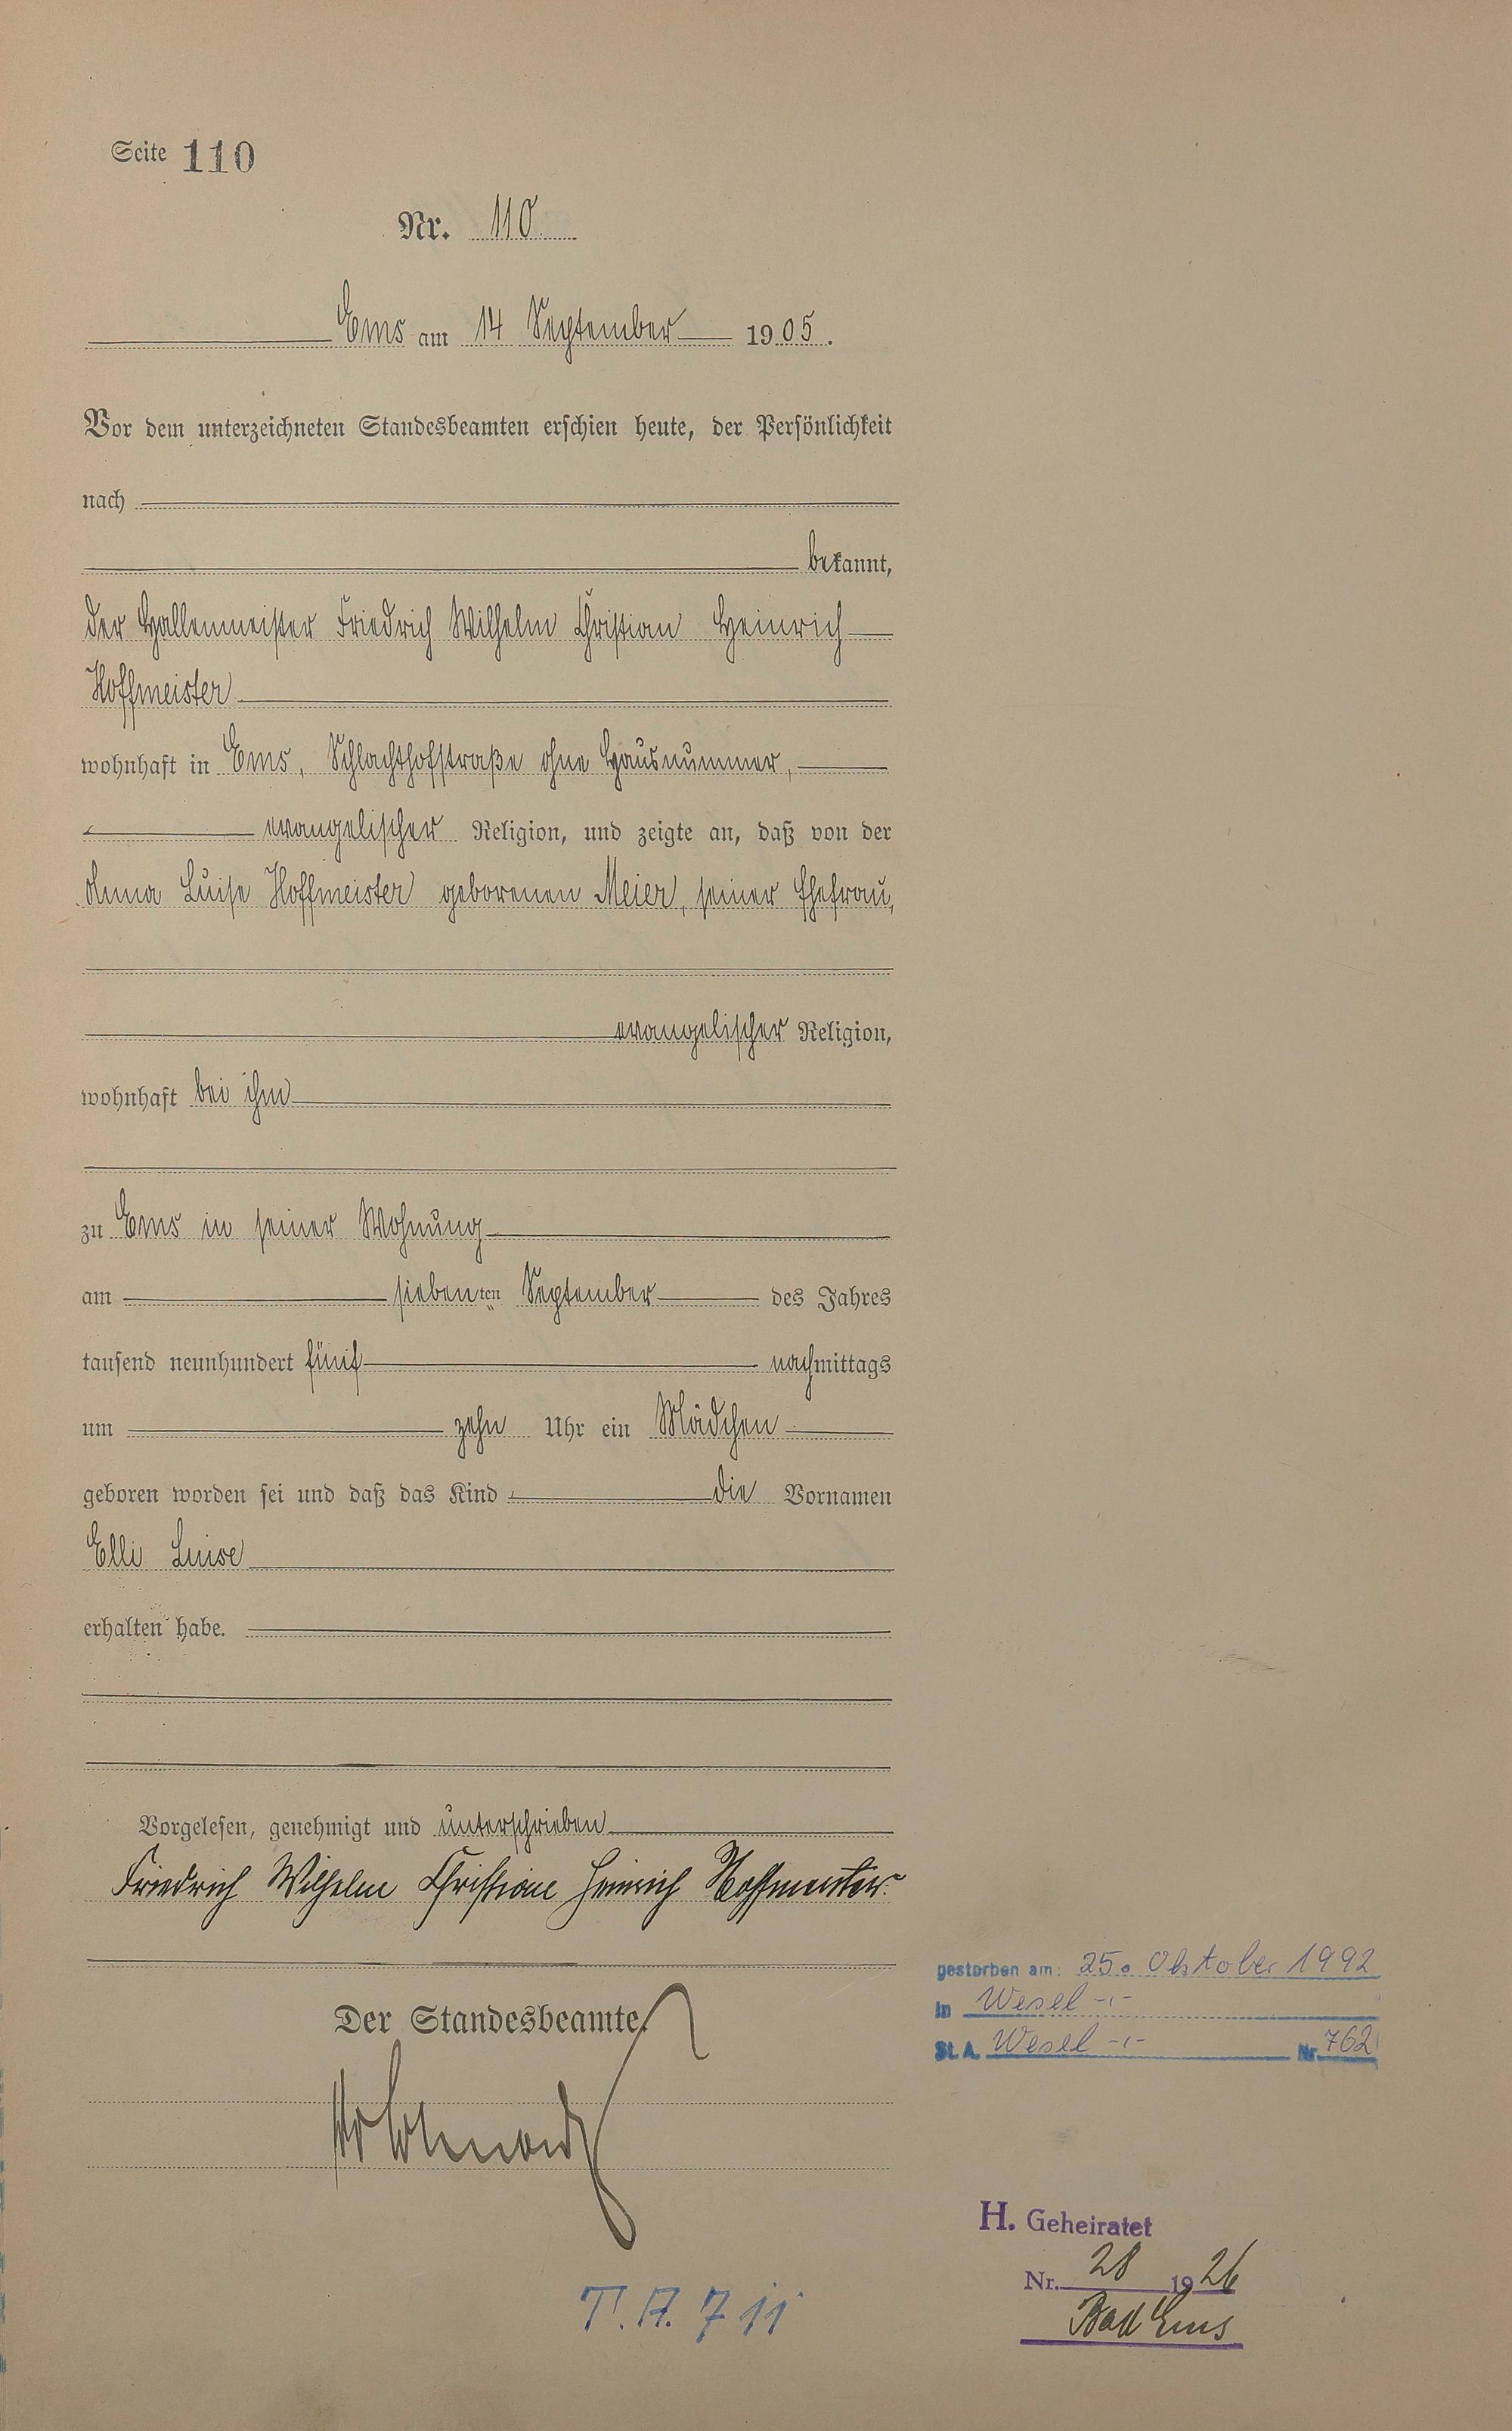 Seite 110
Nr. 110.
Ems am 14 September 1905.
Vor dem unterzeichneten Standesbeamten erschien heute, der Persönlichkeit
nach
bekannt,
der Hallenmeister Friedrich Wilhelm Christian Heinrich
Hoffmeister
wohnhaft in Ems, Schlachthofstraße ohne Hausnummer,
evangelischer Religion, und zeigte an, daß von der
Anna Luise Hoffmeister geborenen Meier, seiner Ehefrau,
evangelischer Religion,
wohnhaft bei ihm
zu Ems in seiner Wohnung
am siebenten September des Jahres
tausend neunhundert fünf nachmittags
um zehn Uhr ein Mädchen
geboren worden sei und daß das Kind die Vornamen
Elli Luise
erhalten habe.
Vorgelesen, genehmigt und unterschrieben
Friedrich Wilhelm Christian Heinrich Hoffmeister.
Der Standesbeamte.
gestorben am: 25. Oktober 1992
in Wesel
St. A. Wesel Nr. 762
H. Geheiratet
Nr. 28 1926
Bad Ems
T. A. 711